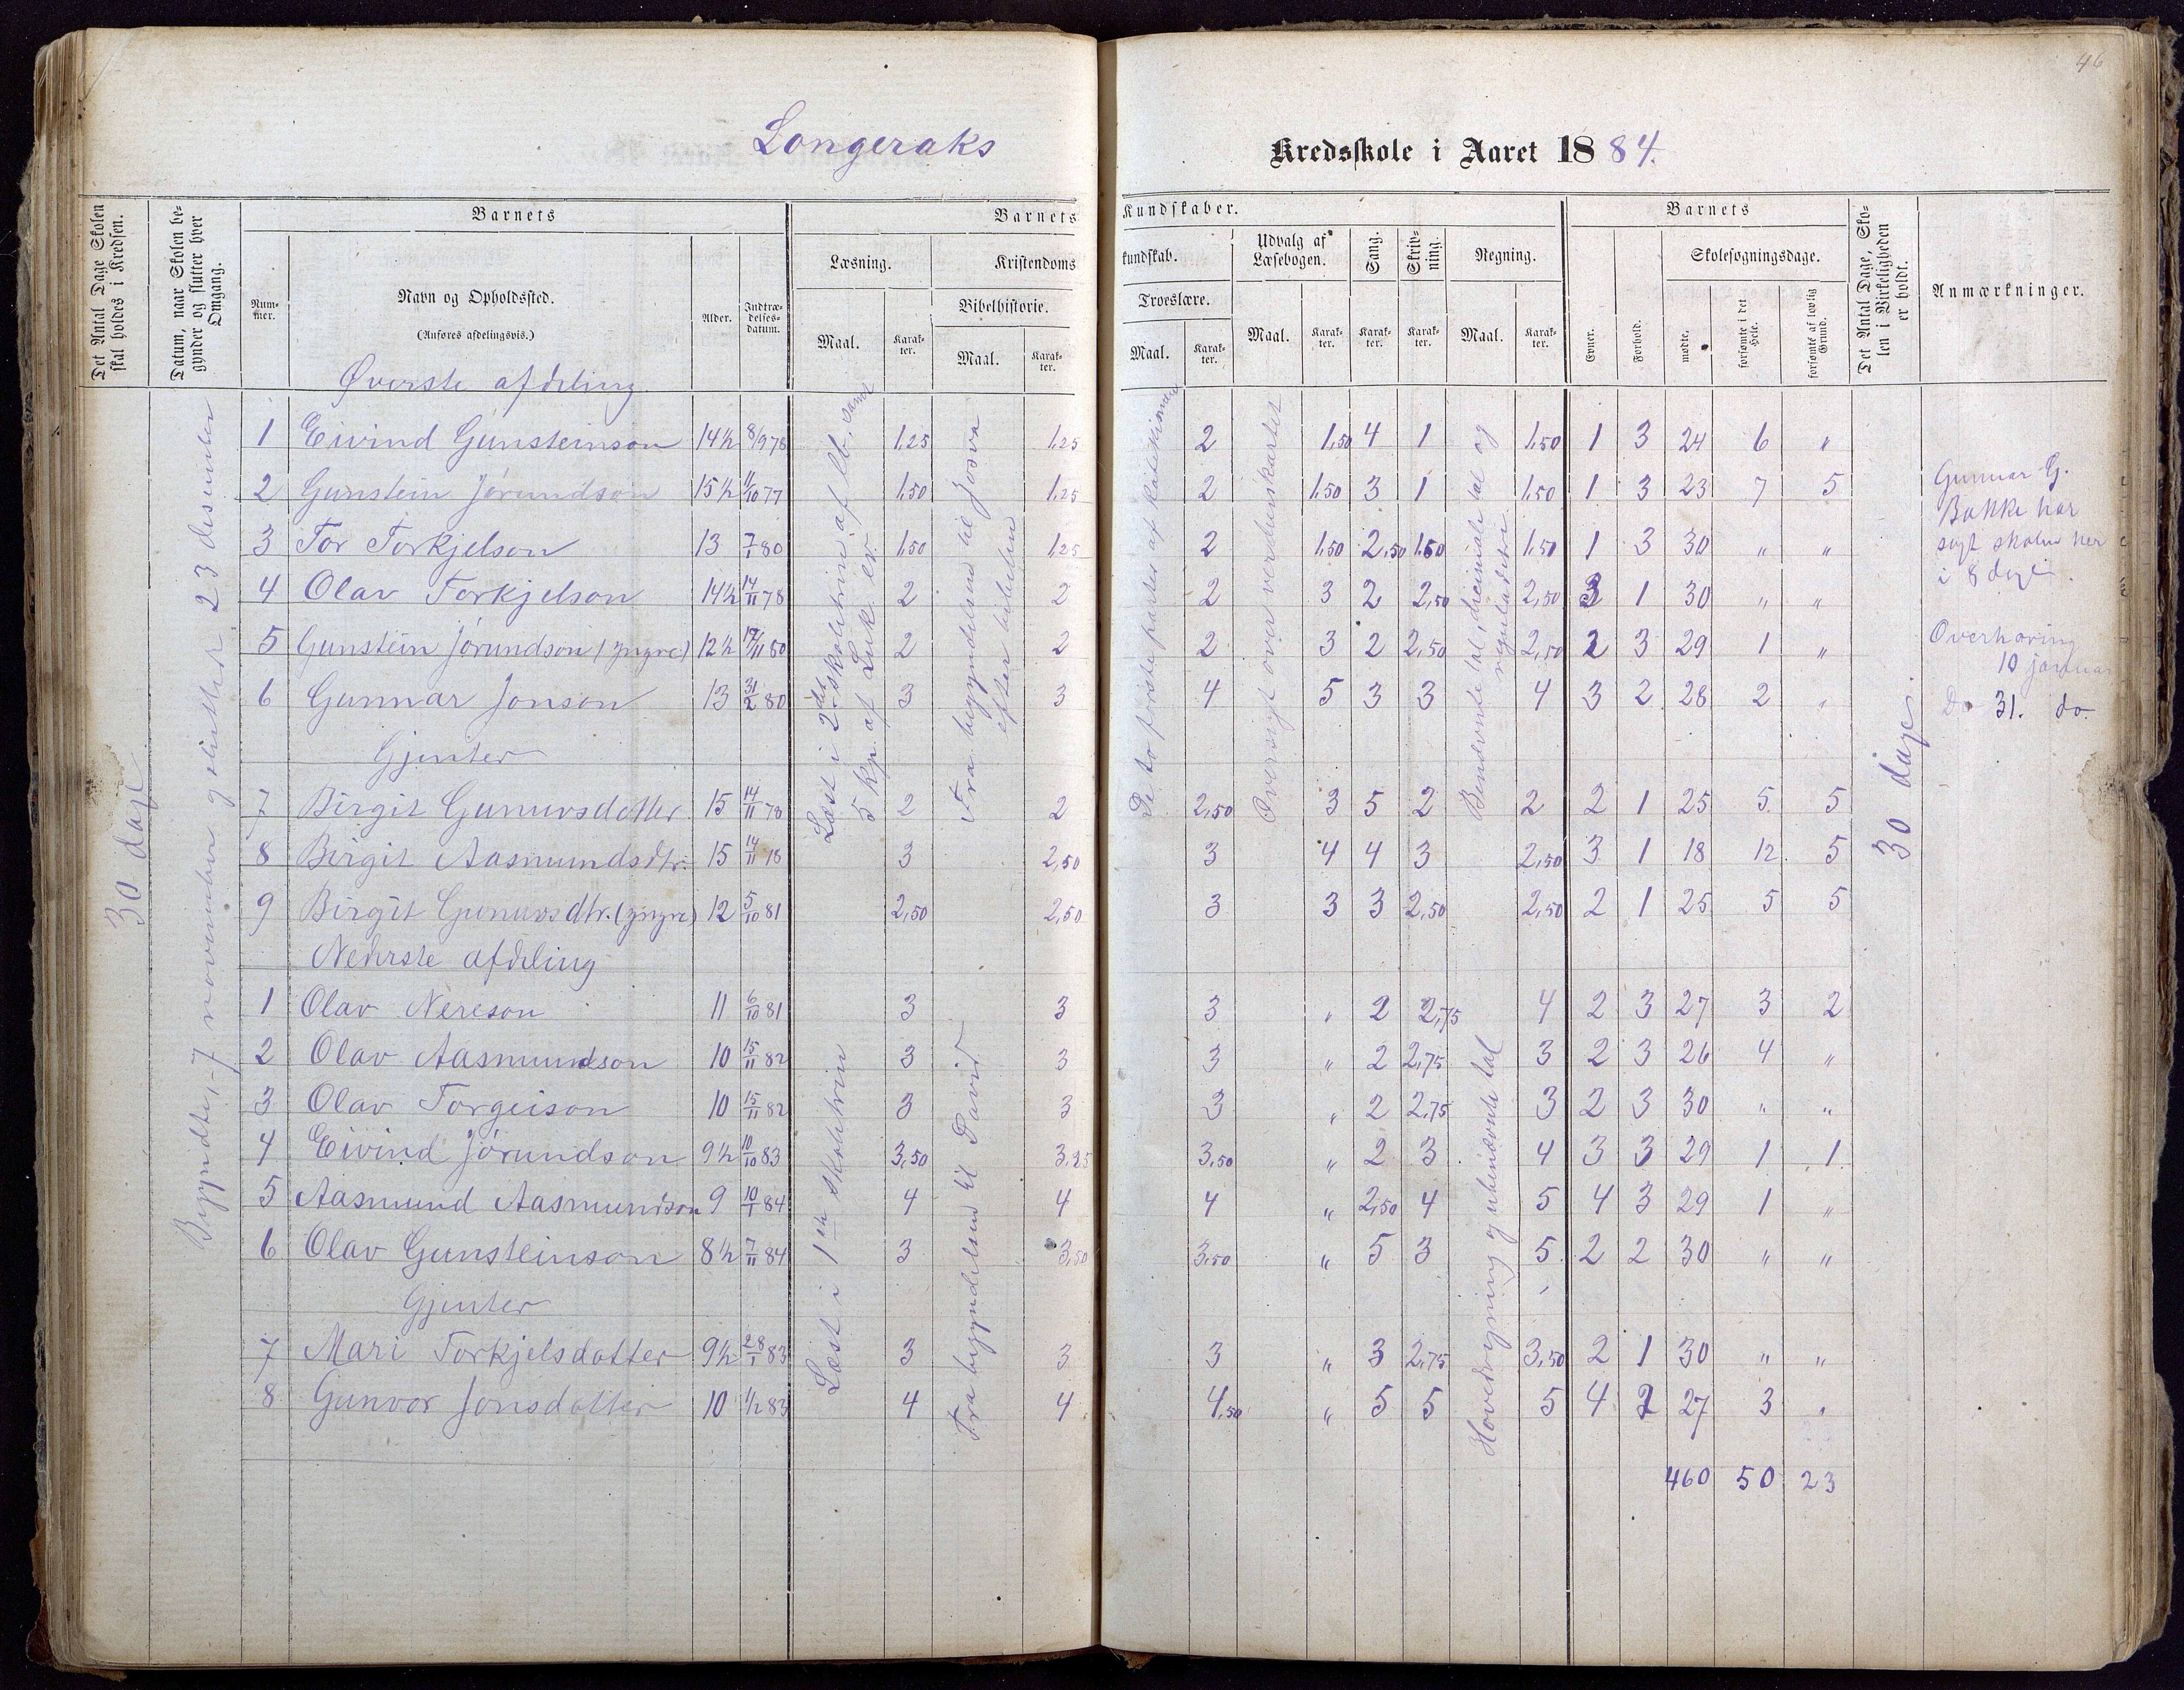 46
Longeraks Kredsskole i Aaret 1884.
Det Antal Dage Skolen skal holdes i Kredsen.
Datum, naar Skolen begynder og slutter hver Omgang.
Barnets
Nummer.
Navn og Opholdssted.
(Anføres afdelingsvis.)
Alder.
Indtrædelsesdatum.
Barnets Kundskaber.
Læsning.
Maal.
Karakter.
Kristendomskundskab.
Bibelhistorie.
Maal.
Karakter.
Troeslære.
Maal.
Karakter.
Udvalg af Læsebogen.
Maal.
Karakter.
Sang.
Karakter.
Skrivning.
Karakter.
Regning.
Maal.
Karakter.
Barnets
Evner.
Forhold.
Skolesøgningsdage.
mødte.
forsømte i det Hele.
forsømte af lovlig Grund.
Det Antal Dage, Skolen i Virkeligheden er holdt.
Anmærkninger.
30 dage
Begyndte 7 november og sluttede 23 desember
Øverste afdeling
1 Eivind Gunsteinson 14½ 8/9 78 1,25 1,25 2 1,50 4 1 1,50 1 3 24 6 "
2 Gunstein Jørundson 15½ 11/10 77 1,50 1,25 2 1,50 3 1 1,50 1 3 23 7 5
3 Tor Torkjelson 13 7/1 80 1,50 1,25 2 1,50 2,50 1,50 1,50 1 3 30 " "
4 Olav Torkjelson 14½ 14/11 78 2 2 2 3 2 2,50 2,50 3 1 30 " "
5 Gunstein Jørundson (yngre) 12½ 17/11 80 2 2 2 3 2 2,50 2,50 2 3 29 1 "
6 Gunnar Jonson 13 31/2 80 3 3 4 5 3 3 4 3 2 28 2 "
Gjenter
7 Birgit Gunnvsdotter 15 14/11 78 2 2 2,50 3 5 2 2 2 1 25 5 5
8 Birgit Aasmundsdtr. 15 14/11 78 3 2,50 3 4 4 3 2,50 3 1 18 12 5
9 Birgit Gunnvsdtr. (yngre) 12 5/10 81 2,50 2,50 3 3 3 2,50 2,50 2 1 25 5 5
Læst i 2det skoletrin af lb. samt
5 kp. af Luk. ev.
Fra begyndelsen til Josva
efter bibelen
De to første parter af katekismen
Oversigt over verdenskartet
Benævnte tal, decimale tal og
reguladetri
Nederste afdeling
1 Olav Nereson 11 6/10 81 3 3 3 " 2 2,75 4 2 3 27 3 2
2 Olav Aasmundson 10 15/11 82 3 3 3 " 2 2,75 3 2 3 26 4 "
3 Olav Torgeison 10 15/11 82 3 3 3 " 2 2,75 3 2 3 30 " "
4 Eivind Jørundson 9½ 10/10 83 3,50 3,25 3,50 " 2 3 4 3 3 29 1 1
5 Aasmund Aasmundson 9 10/1 84 4 4 4 " 2,50 4 5 4 3 29 1 "
6 Olav Gunsteinson 8½ 7/11 84 3 3,50 3,50 " 5 3 5 2 2 30 " "
Gjenter
7 Mari Torkjelsdotter 9½ 28/1 83 3 3 3 " 3 2,75 3,50 2 1 30 " "
8 Gunvor Jonsdotter 10 1/2 83 4 4 4,50 " 5 5 5 4 2 27 3 "
Læst i 1ste skoletrin
Fra begyndelsen til David
Hovedregning og ubenævnte tal
460 50 23
30 dage.
Gunnar G.
Bakke har
søgt skolen her
i 8 dage.
Overhøring
10 januar
Do 31. do.